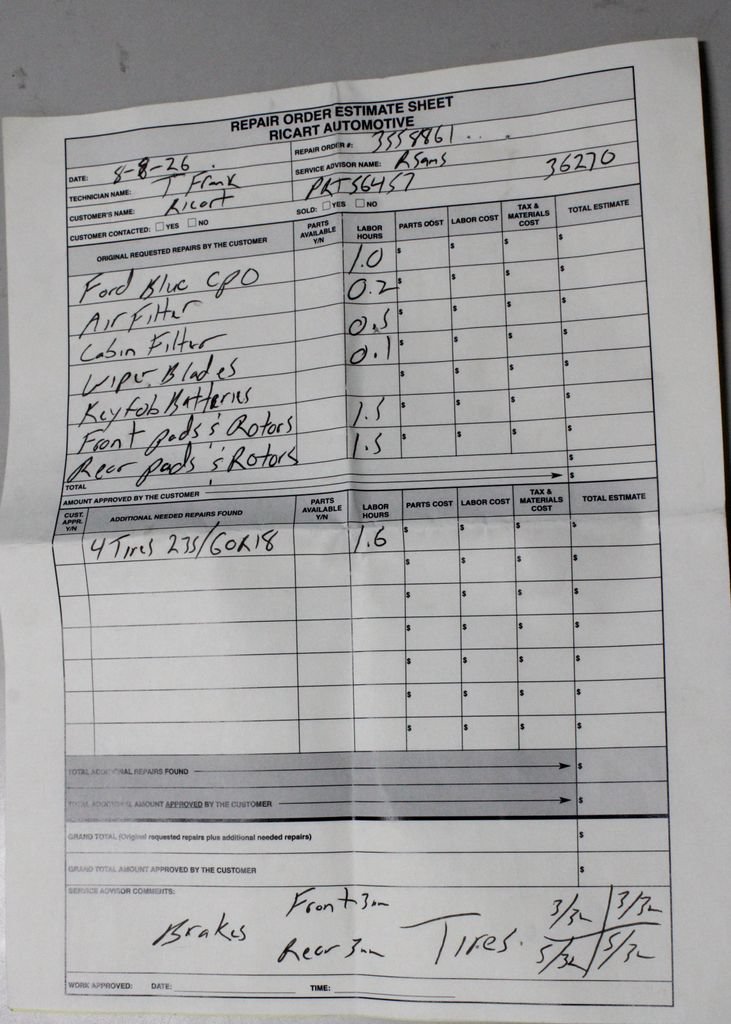 REPAIR ORDER ESTIMATE SHEET
RICART AUTOMOTIVE
DATE: 8-8-26 REPAIR ORDER #: 3558861
TECHNICIAN NAME: T Frank SERVICE ADVISOR NAME: RSams 36270
CUSTOMER'S NAME: Ricart PRT56457
CUSTOMER CONTACTED: YES NO SOLD: YES NO
ORIGINAL REQUESTED REPAIRS BY THE CUSTOMER PARTS AVAILABLE Y/N LABOR HOURS PARTS COST LABOR COST TAX & MATERIALS COST TOTAL ESTIMATE
Ford Blue CPO 1.0 $ $ $ $
Air Filter 0.2 $ $ $ $
Cabin Filter 0.5 $ $ $ $
Wiper Blades 0.1 $ $ $ $
Keyfob Batteries $ $ $ $
Front pads & Rotors 1.5 $ $ $ $
Rear pads & Rotors 1.5 $ $ $ $
TOTAL $
AMOUNT APPROVED BY THE CUSTOMER $
CUST. APPR. Y/N ADDITIONAL NEEDED REPAIRS FOUND PARTS AVAILABLE Y/N LABOR HOURS PARTS COST LABOR COST TAX & MATERIALS COST TOTAL ESTIMATE
4 Tires 235/60R18 1.6 $ $ $ $
$ $ $ $
$ $ $ $
$ $ $ $
$ $ $ $
$ $ $ $
$ $ $ $
TOTAL ADDITIONAL REPAIRS FOUND $
TOTAL ADDITIONAL AMOUNT APPROVED BY THE CUSTOMER $
GRAND TOTAL (Original requested repairs plus additional needed repairs) $
GRAND TOTAL AMOUNT APPROVED BY THE CUSTOMER $
SERVICE ADVISOR COMMENTS:
Brakes Front 3mm Tires. 3/32 3/32
Rear 3mm 5/32 5/32
WORK APPROVED: DATE: TIME: